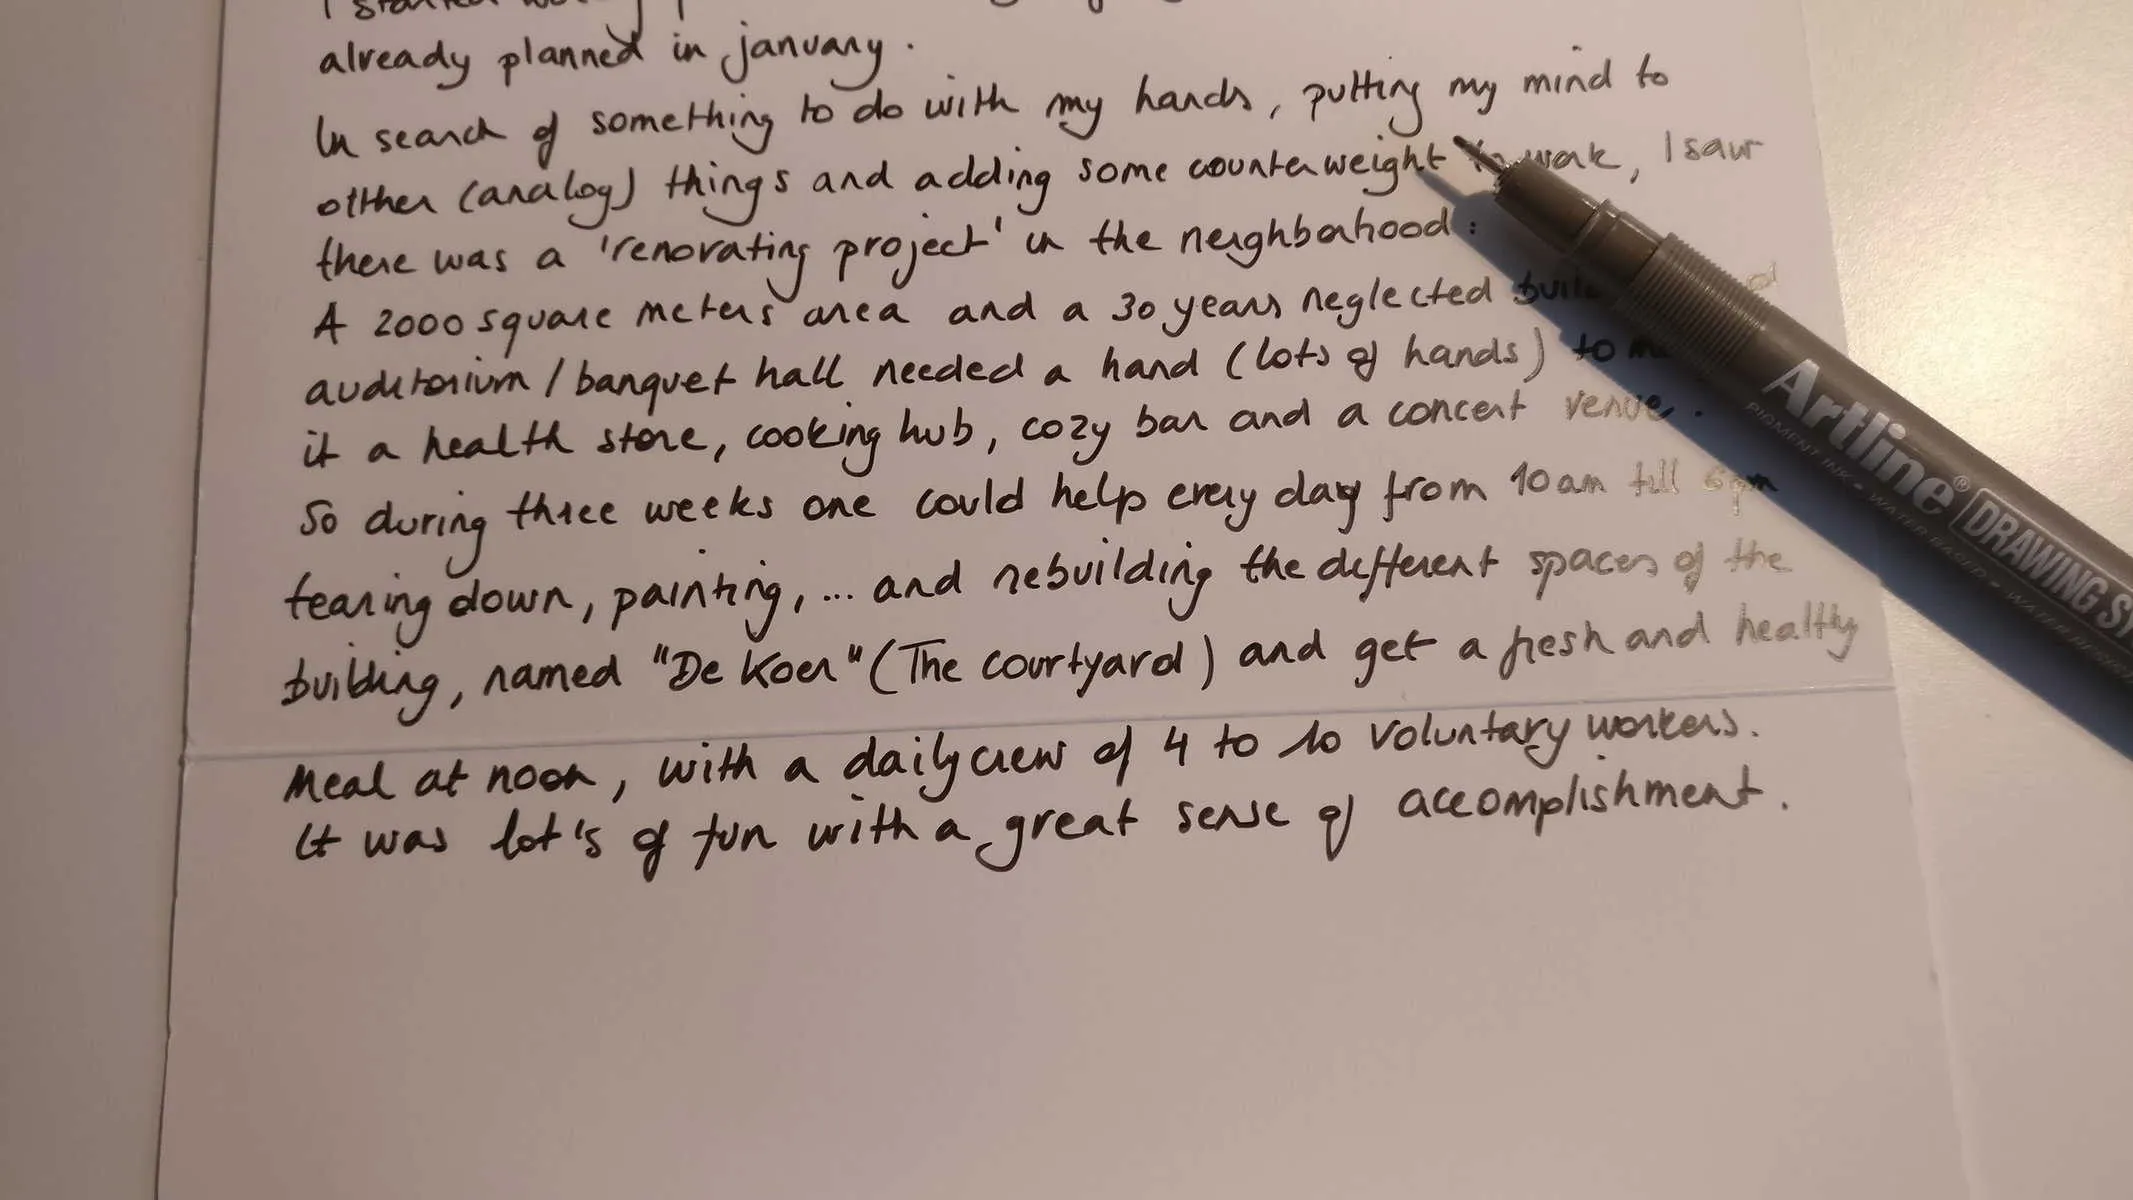 I started
already planned in january.
In search of something to do with my hands, putting my mind to
otther (analog) things and adding some counterweight to work, I saw
there was a 'renovating project' in the neighborhood:
A 2000 square meters area and a 30 years neglected
auditorium / banquet hall needed a hand (lots of hands) to
it a health store, cooking hub, cozy bar and a concert venue.
So during three weeks one could help every day from 10am till 6pm
tearing down, painting, ... and rebuilding the different spaces of the
building, named "De Koer" (The courtyard) and get a fresh and healthy
meal at noon, with a daily crew of 4 to 10 voluntary workers.
It was lot's of fun with a great sense of accomplishment.
Artline® DRAWING
PIGMENT INK • WATER BASED • WATER